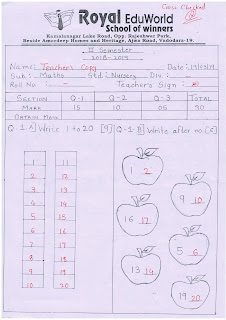 Cross Checked
Royal EduWorld
School of winners
Kamalanagar Lake Road, Opp. Rajeshwar Park,
Beside Amordeep Homes and Heritage, Ajwa Road, Vadodara-19.
II Semester
2018-2019
Name: Teacher's Copy Date:
Sub: Maths Std: Nursery Div: -
Roll No Teacher's Sign:
SECTION Q-1 Q-2 Q-3 TOTAL
MARK 15 10 05 30
OBTAIN MARK
Q-1 A] Write 1 to 20 [9] Q-1-B] Write after no [6]
1 11
2 12
3 13
4 14
5 15
6 16
7 17
8 18
9 19
10 20
1 2
9 10
16 17
5 6
13 14
19 20